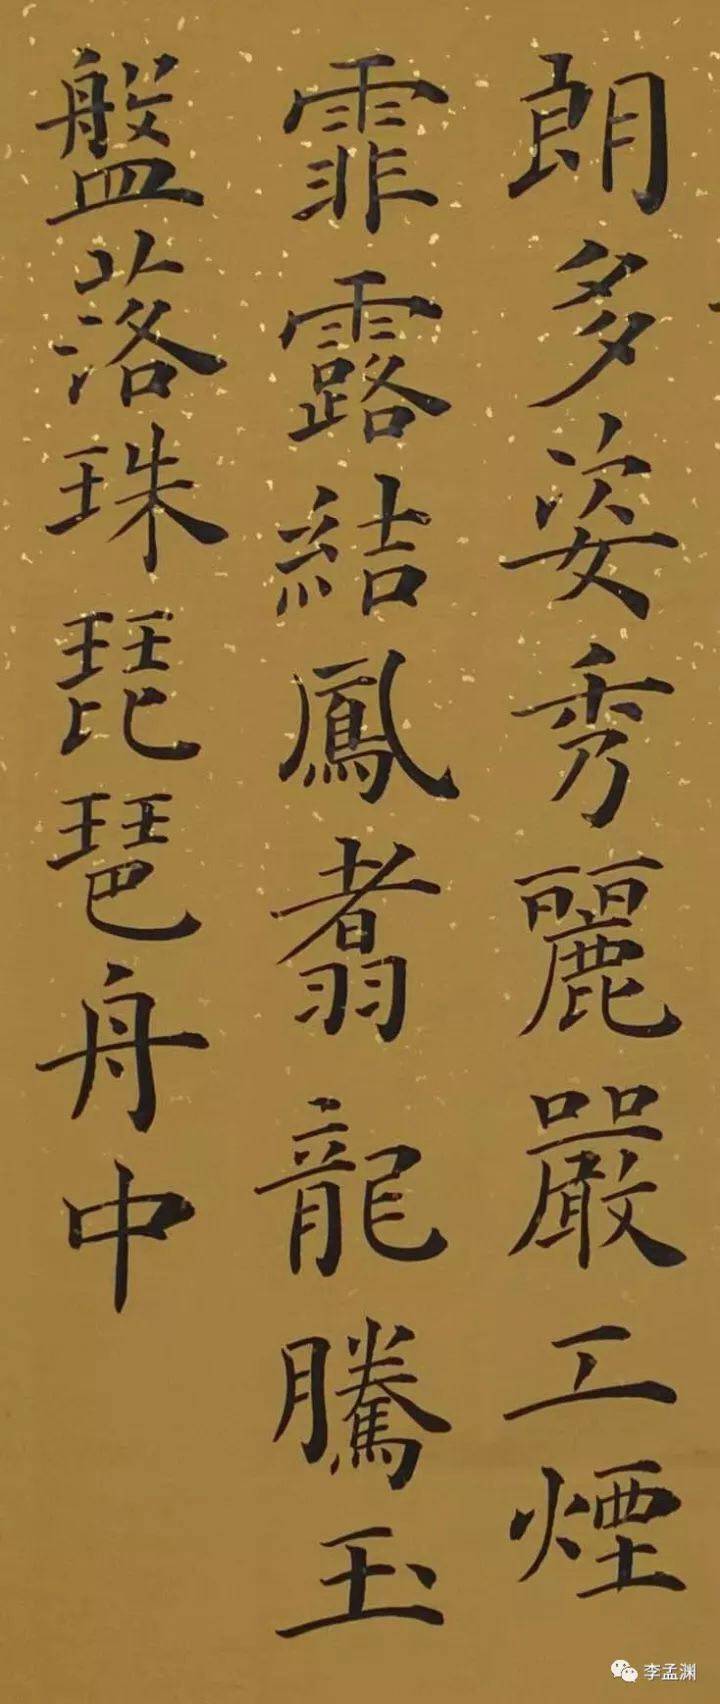 朗多姿秀麗嚴工煙
霏露結鳳翥龍騰玉
盤落珠琵琶舟中
李孟渊